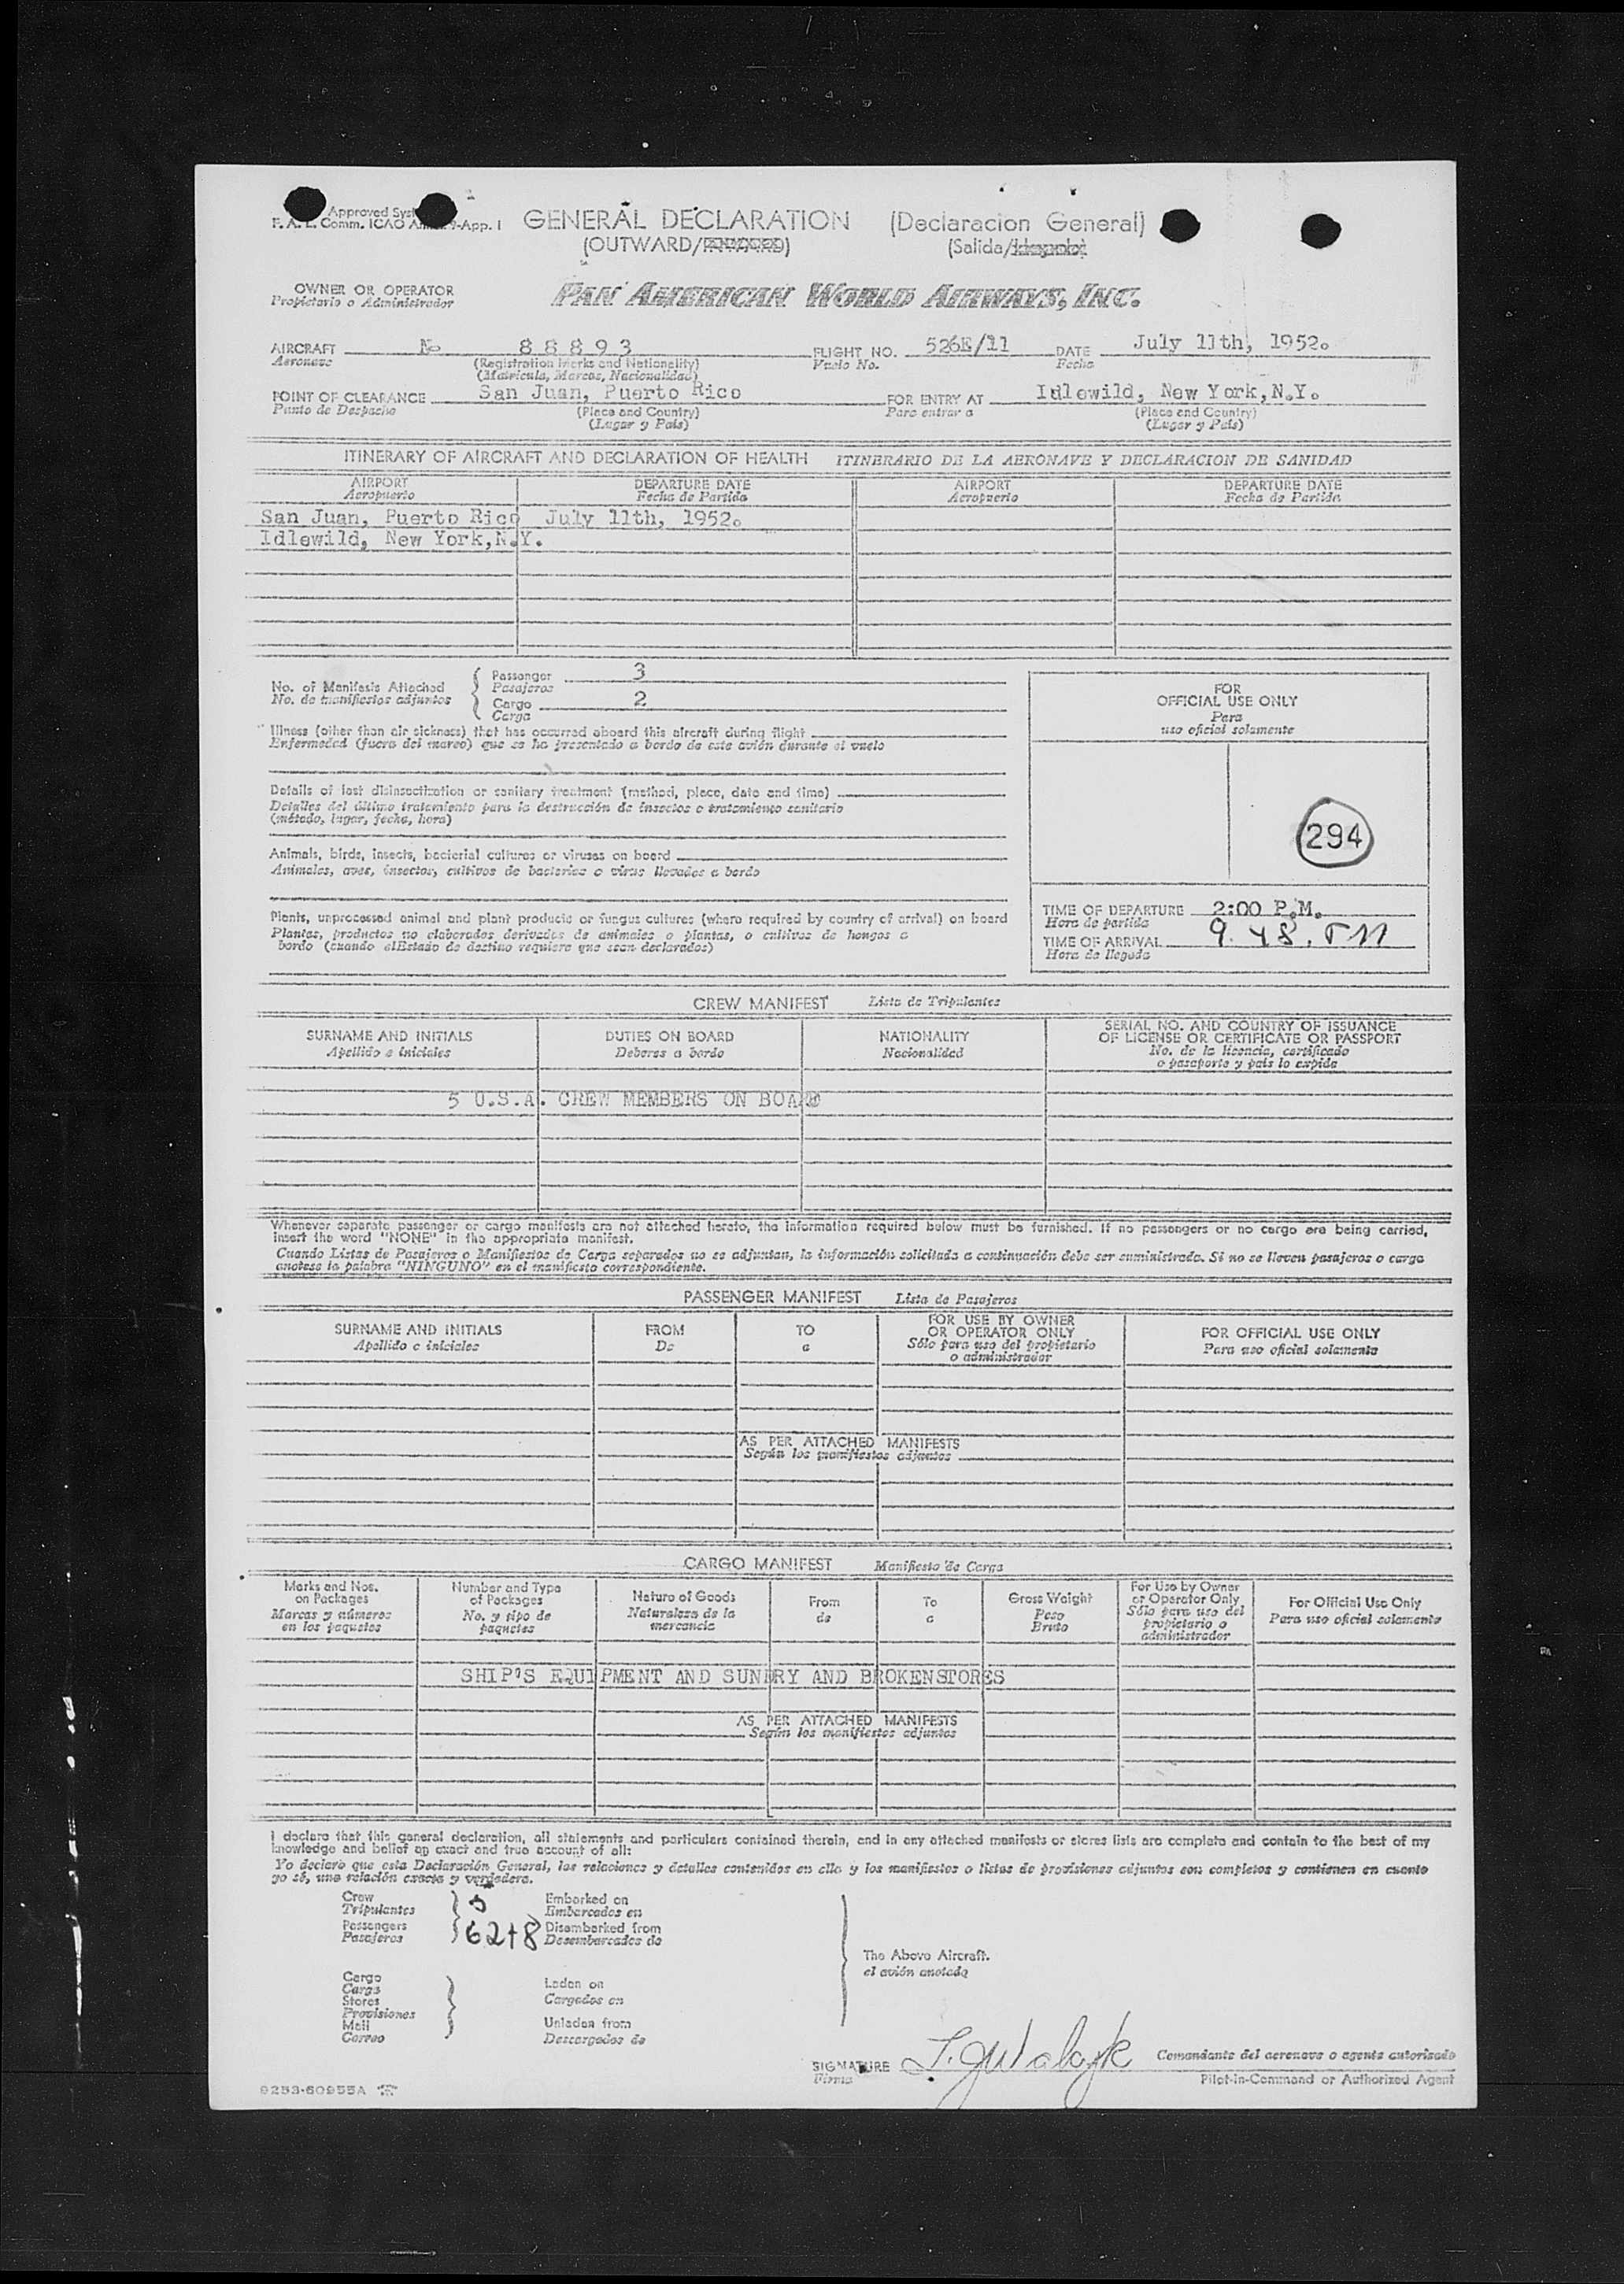 Approved Syst
F. A. L. Comm. ICAO Annex 9-App. 1
GENERAL DECLARATION (Declaracion General)
(OUTWARD/INWARD) (Salida/Llegada)
OWNER OR OPERATOR
Propietario o Administrador
PAN AMERICAN WORLD AIRWAYS, INC.
AIRCRAFT No 88893 FLIGHT NO. 526E/11 DATE July 11th, 1952.
Aeronave (Registration Marks and Nationality) Vuelo No. Fecha
(Matricula, Marcas, Nacionalidad)
POINT OF CLEARANCE San Juan, Puerto Rico FOR ENTRY AT Idlewild, New York, N.Y.
Punto de Despacho (Place and Country) Para entrar a (Place and Country)
(Lugar y País) (Lugar y País)
ITINERARY OF AIRCRAFT AND DECLARATION OF HEALTH ITINERARIO DE LA AERONAVE Y DECLARACION DE SANIDAD
AIRPORT DEPARTURE DATE AIRPORT DEPARTURE DATE
Aeropuerto Fecha de Partida Aeropuerto Fecha de Partida
San Juan, Puerto Rico July 11th, 1952.
Idlewild, New York, N.Y.
No. of Manifests Attached
No. de manifiestos adjuntos
Passenger 3
Pasajeros
Cargo 2
Carga
Illness (other than air sickness) that has occurred aboard this aircraft during flight
Enfermedad (fuera del mareo) que se ha presentado a bordo de este avión durante el vuelo
Details of last disinsectization or sanitary treatment (method, place, date and time)
Detalles del último tratamiento para la destrucción de insectos o tratamiento sanitario
(método, lugar, fecha, hora)
Animals, birds, insects, bacterial cultures or viruses on board
Animales, aves, insectos, cultivos de bacterias o virus llevados a bordo
Plants, unprocessed animal and plant products or fungus cultures (where required by country of arrival) on board
Plantas, productos no elaborados derivados de animales o plantas, o cultivos de hongos a
bordo (cuando el Estado de destino requiera que sean declarados)
FOR
OFFICIAL USE ONLY
Para
uso oficial solamente
294
TIME OF DEPARTURE 2:00 P.M.
Hora de partida
TIME OF ARRIVAL 9.48.PM
Hora de llegada
CREW MANIFEST Lista de Tripulantes
SURNAME AND INITIALS DUTIES ON BOARD NATIONALITY SERIAL NO. AND COUNTRY OF ISSUANCE
OF LICENSE OR CERTIFICATE OR PASSPORT
Apellido e iniciales Deberes a bordo Nacionalidad No. de la licencia, certificado
o pasaporte y país lo expide
5 U.S.A. CREW MEMBERS ON BOARD
Whenever separate passenger or cargo manifests are not attached hereto, the information required below must be furnished. If no passengers or no cargo are being carried,
insert the word "NONE" in the appropriate manifest.
Cuando Listas de Pasajeros o Manifiestos de Carga separados no se adjuntan, la información solicitada a continuación debe ser suministrada. Si no se llevan pasajeros o carga
anotese la palabra "NINGUNO" en el manifiesto correspondiente.
PASSENGER MANIFEST Lista de Pasajeros
SURNAME AND INITIALS FROM TO FOR USE BY OWNER
OR OPERATOR ONLY FOR OFFICIAL USE ONLY
Apellido e iniciales De a Sólo para uso del propietario
o administrador Para uso oficial solamente
AS PER ATTACHED MANIFESTS
Según los manifiestos adjuntos
CARGO MANIFEST Manifiesto de Carga
Marks and Nos.
on Packages
Marcas y números
en los paquetes
Number and Type
of Packages
No. y tipo de
paquetes
Nature of Goods
Naturaleza de la
mercancia
From
de
To
a
Gross Weight
Peso
Bruto
For Use by Owner
or Operator Only
Sólo para uso del
propietario o
administrador
For Official Use Only
Para uso oficial solamente
SHIP'S EQUIPMENT AND SUNDRY AND BROKENSTORES
AS PER ATTACHED MANIFESTS
Según los manifiestos adjuntos
I declare that this general declaration, all statements and particulars contained therein, and in any attached manifests or stores lists are complete and contain to the best of my
knowledge and belief an exact and true account of all:
Yo declaro que esta Declaración General, las relaciones y detalles contenidos en ella y los manifiestos o listas de provisiones adjuntos son completos y contienen en cuanto
yo sé, una relación exacta y verdadera.
Crew
Tripulantes
5
Passengers
Pasajeros
62+8
Embarked on
Embarcados en
Disembarked from
Desembarcados de
Cargo
Carga
Stores
Provisiones
Mail
Correo
Laden on
Cargados en
Unladen from
Descargados de
The Above Aircraft.
el avión anotado
SIGNATURE
Firma
Comandante del aeronave o agente autorizado
Pilot-in-Command or Authorized Agent
9253-60955A